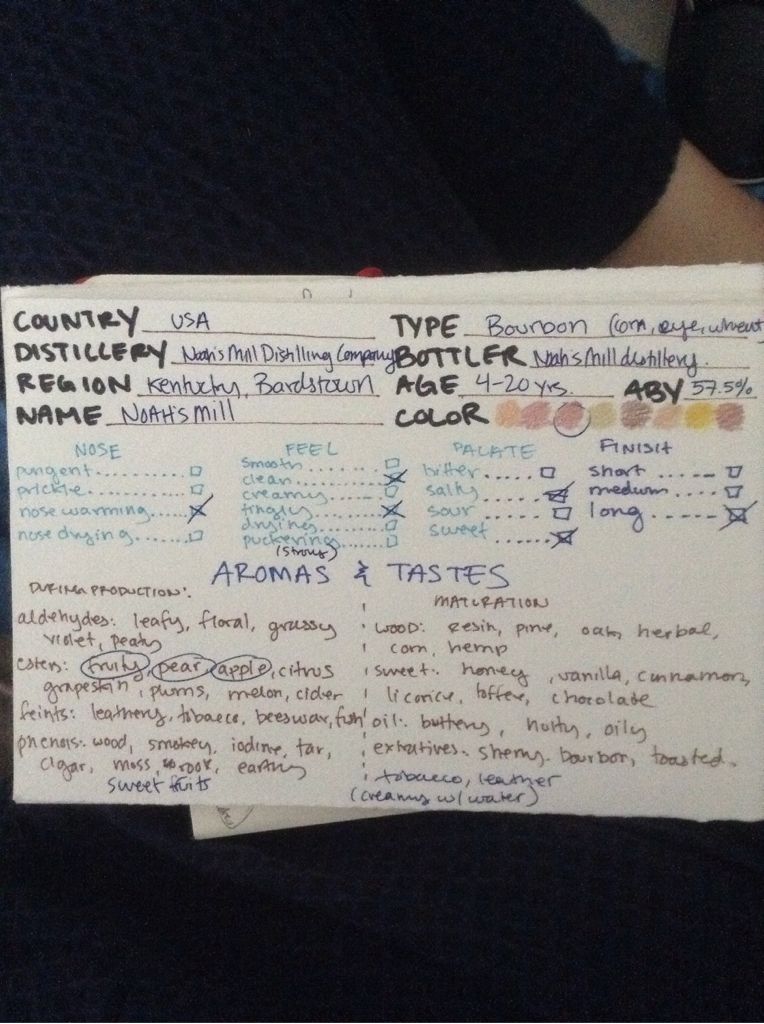 COUNTRY USA
TYPE Bourbon (corn, rye, wheat
DISTILLERY Noah's Mill Distilling Company
BOTTLER Noah's Mill distillery.
REGION Kentucky, Bardstown
AGE 4-20 yrs. ABV 57.5%
NAME NOAH'S MILL
COLOR
NOSE
pungent
prickle
nose warming
nose drying
FEEL
smooth
clean
creamy
tingly
drying
puckering
(strong)
PALATE
bitter
salty
sour
sweet
FINISH
short
medium
long
AROMAS & TASTES
DURING PRODUCTION:
aldehydes: leafy, floral, grassy
violet, peaty
esters: fruity, pear, apple, citrus
grapeskin, plums, melon, cider
feints: leathery, tobacco, beeswax, fish
phenols: wood, smokey, iodine, tar,
cigar, moss, earthy
sweet fruits
MATURATION
wood: resin, pine, oak, herbal,
corn, hemp
sweet: honey, vanilla, cinnamon,
licorice, toffee, chocolate
oil: buttery, nutty, oily
extratives: sherry. bourbon, toasted.
tobacco, leather
(creamy w/ water)